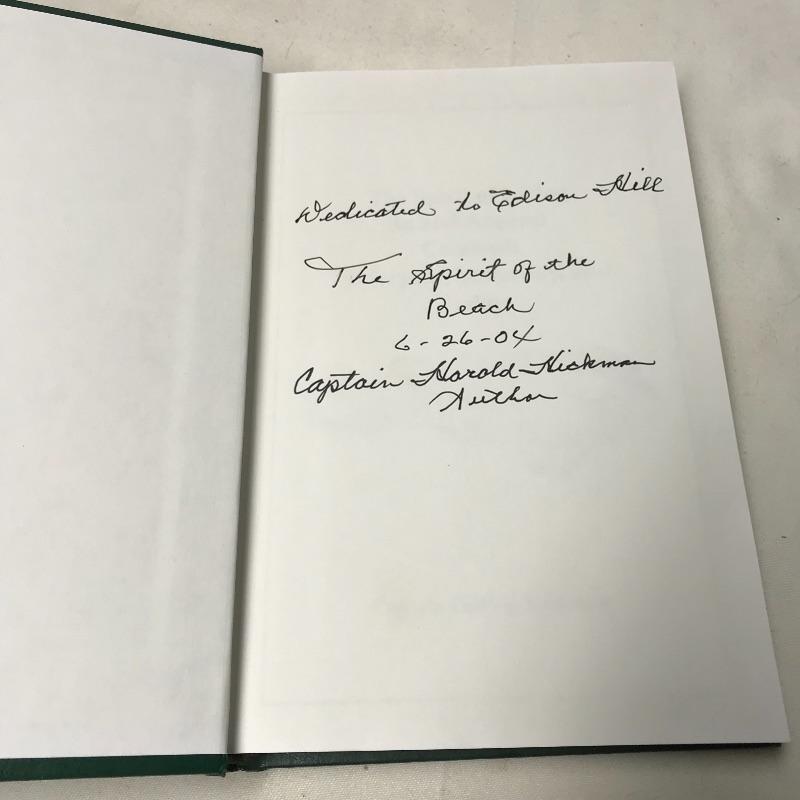 Dedicated to Edison Hill
The Spirit of the
Beach
6-26-04
Captain Harold Hickman
Author